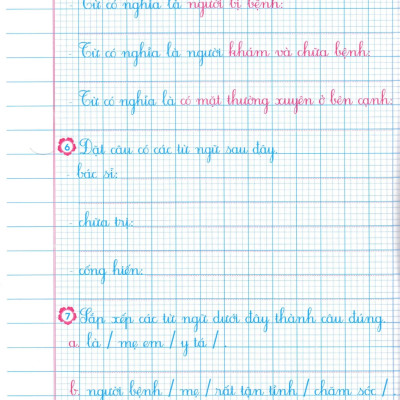 - Từ có nghĩa là người bị bệnh:
- Từ có nghĩa là người khám và chữa bệnh:
- Từ có nghĩa là có mặt thường xuyên ở bên cạnh:
6 Đặt câu có các từ ngữ sau đây.
- bác sĩ:
- chữa trị:
- cống hiến:
7 Sắp xếp các từ ngữ dưới đây thành câu đúng.
a. là / mẹ em / y tá / .
b. người bệnh / mẹ / rất tận tình / chăm sóc /